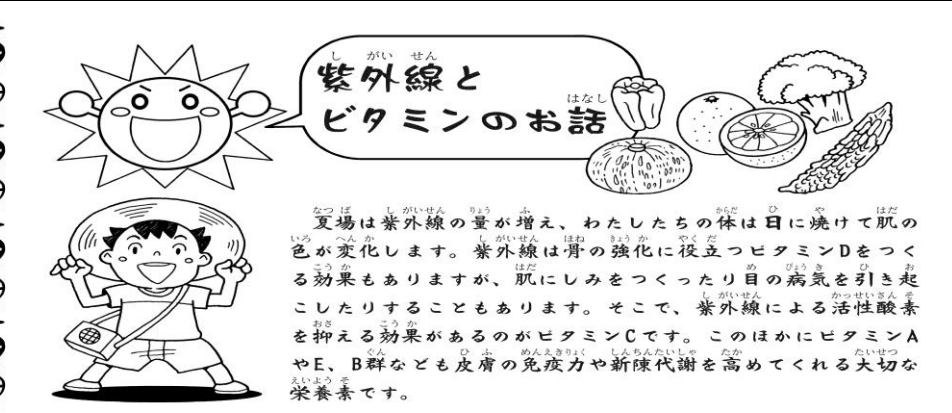 紫外線と
ビタミンのお話
夏場は紫外線の量が増え、わたしたちの体は日に焼けて肌の
色が変化します。紫外線は骨の強化に役立つビタミンDをつく
る効果もありますが、肌にしみをつくったり目の病気を引き起
こしたりすることもあります。そこで、紫外線による活性酸素
を抑える効果があるのがビタミンCです。このほかにビタミンA
やE、B群なども皮膚の免疫力や新陳代謝を高めてくれる大切な
栄養素です。